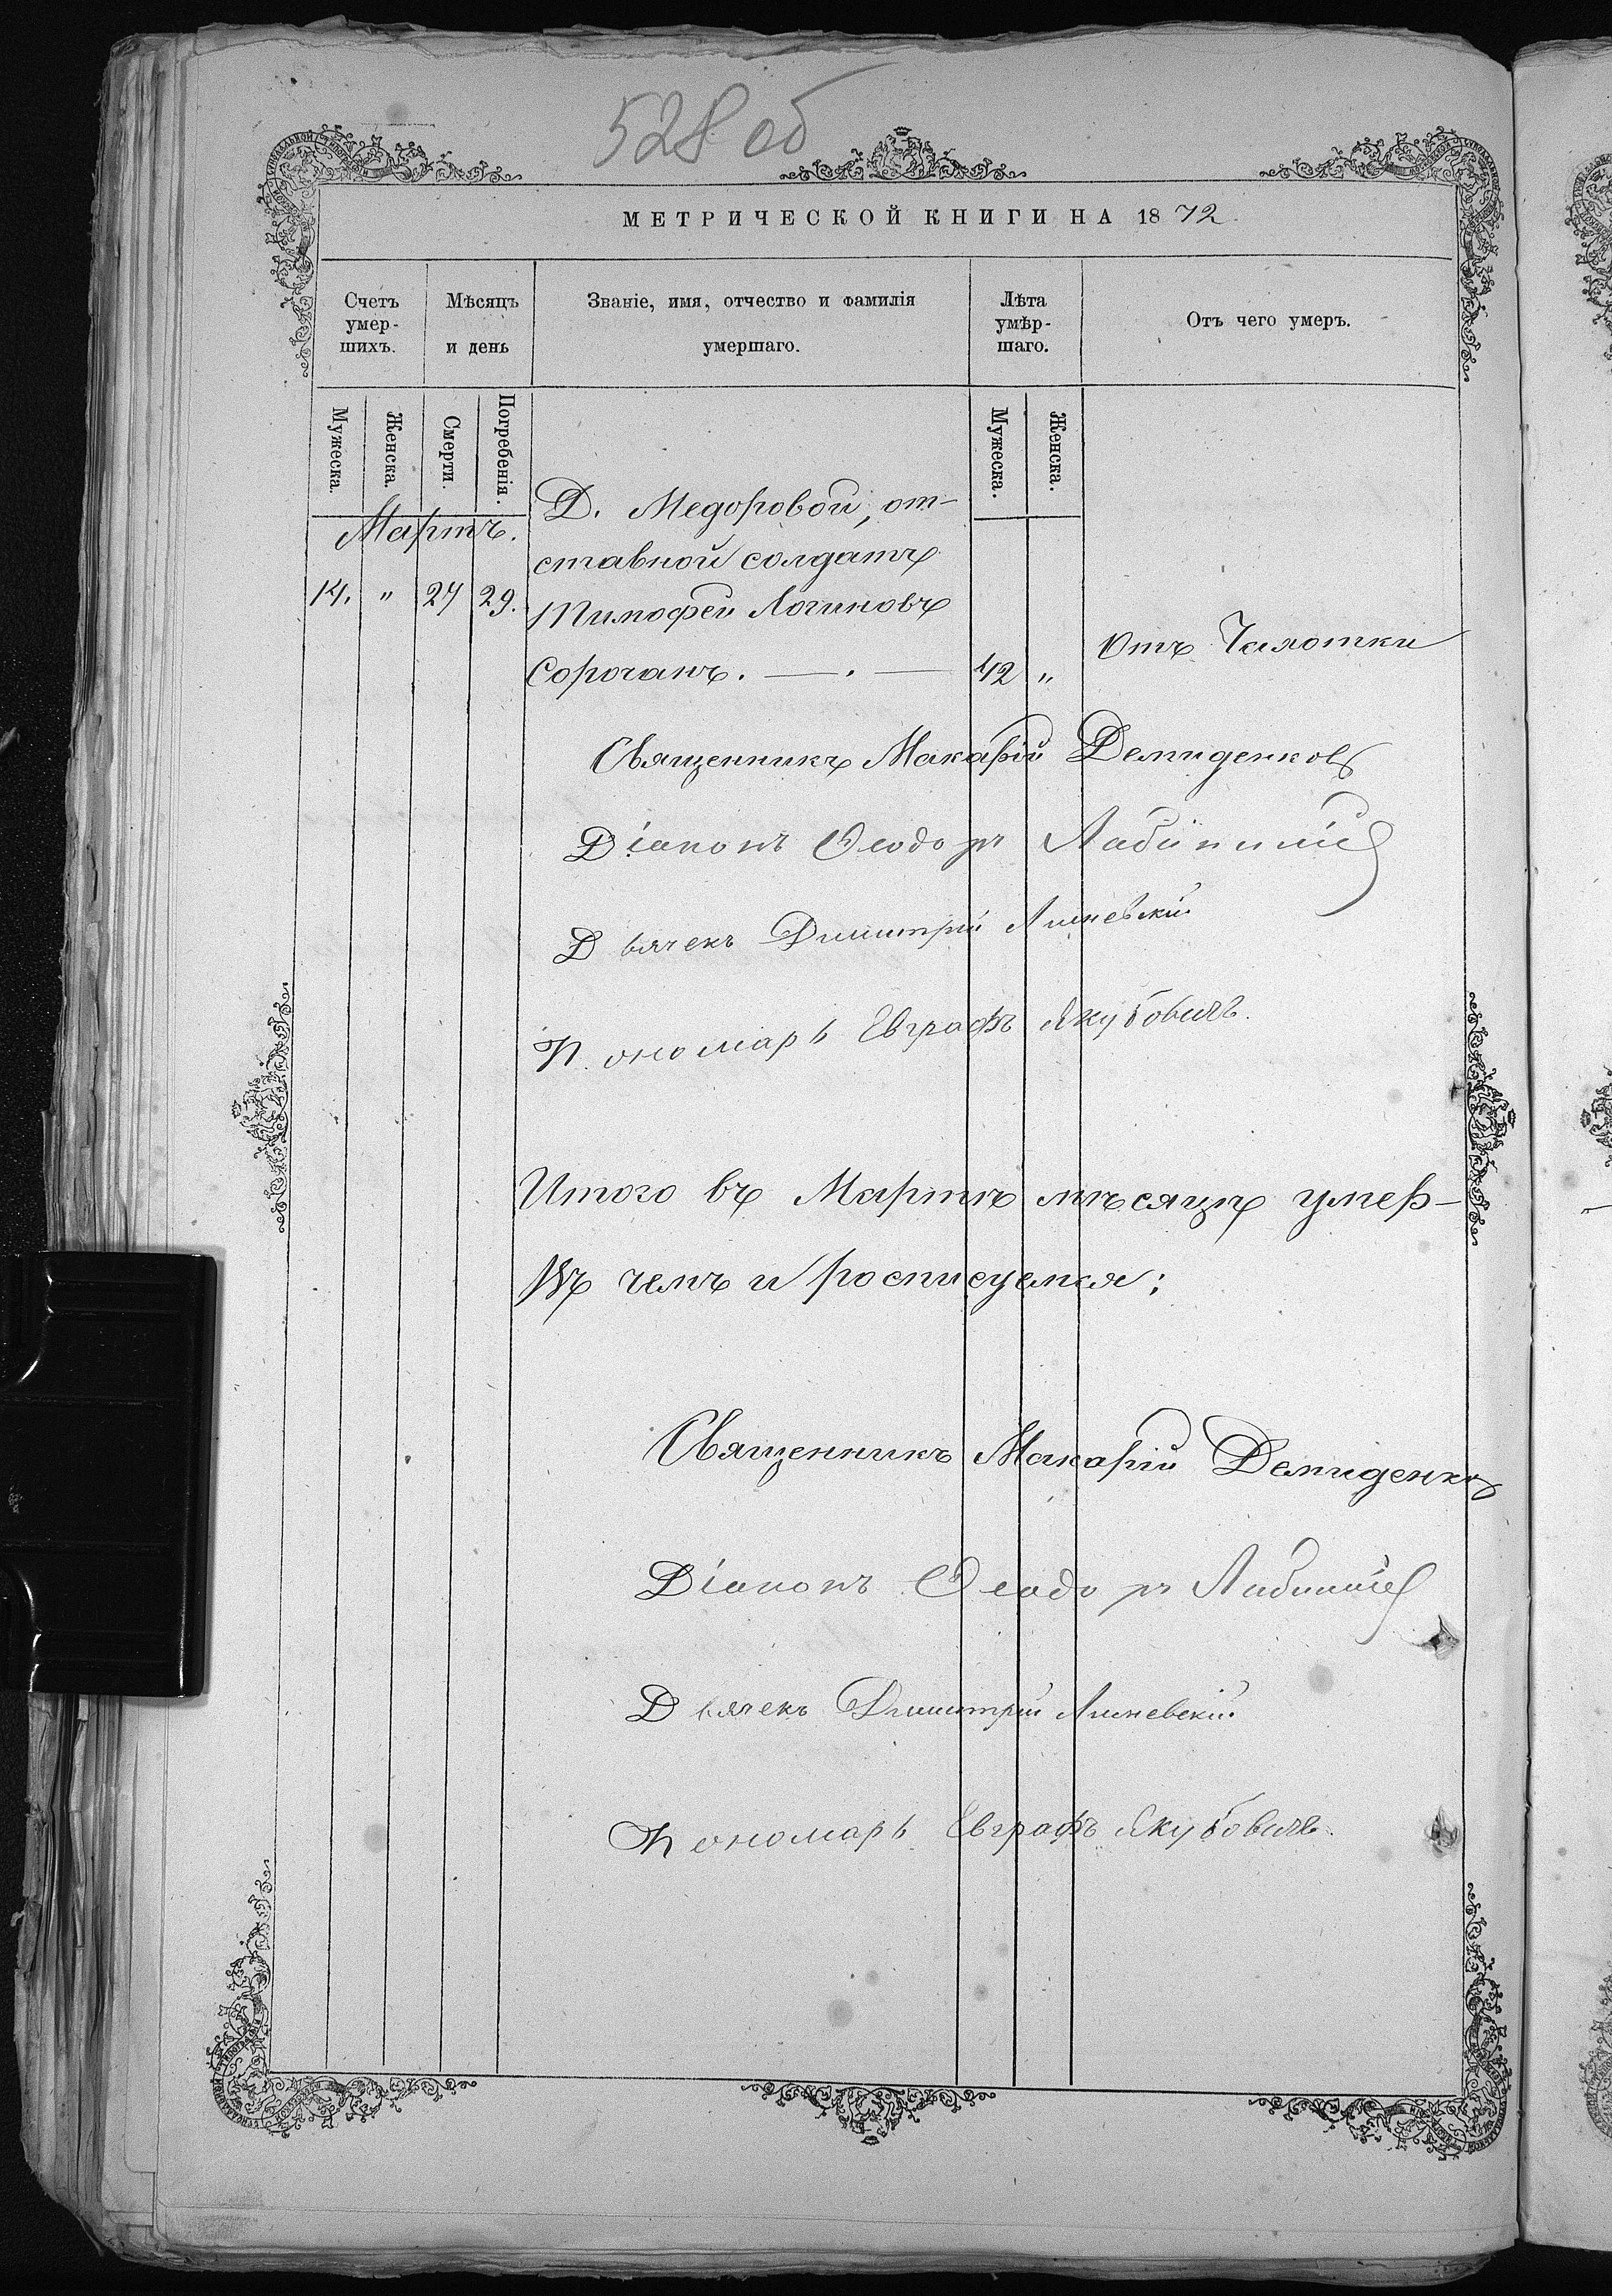 528 об
МЕТРИЧЕСКОЙ КНИГИ НА 1872
Счетъ умер-шихъ.
Мѣсяцъ и день
Званіе, имя, отчество и фамилія умершаго.
Лѣта умѣр-шаго.
Отъ чего умеръ.
Мужеска. Женска. Смерти. Погребенія. Мужеска. Женска.
Д. Медоровой, от-
Мартъ.
ставной солдатъ
14. " 27 29. Тимофей Логиновъ
Сорочанъ. — . — 42 " Отъ Чахотки
Священникъ Макарій Демиденковъ
Діаконъ Ѳеодоръ
Дьячекъ Димитрій Линевскій
Пономарь Евграфъ Якубовичъ.
Итого въ Мартѣ мѣсяцѣ умер-
Въ чемъ и росписуемся:
Священникъ Макарій Демиденко
Діаконъ Ѳеодоръ
Дьячекъ Димитрій Линевскій
Пономарь Евграфъ Якубовичъ.